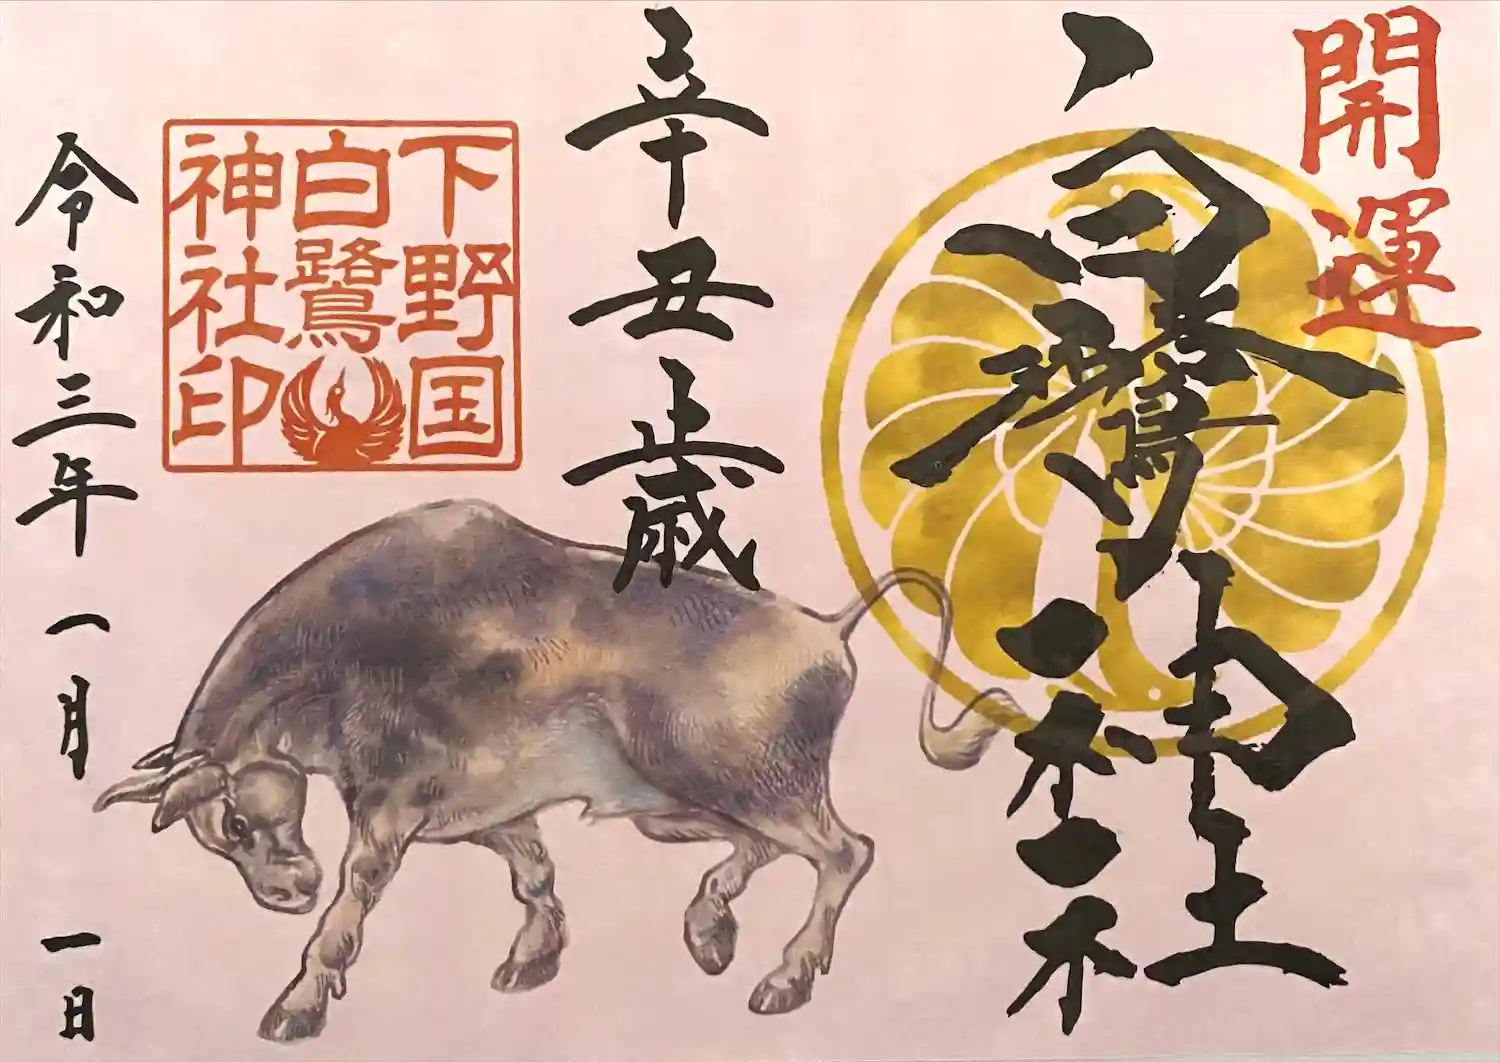 開運
白鷺神社
辛丑歳
下野国
白鷺
神社印
令和三年一月一日